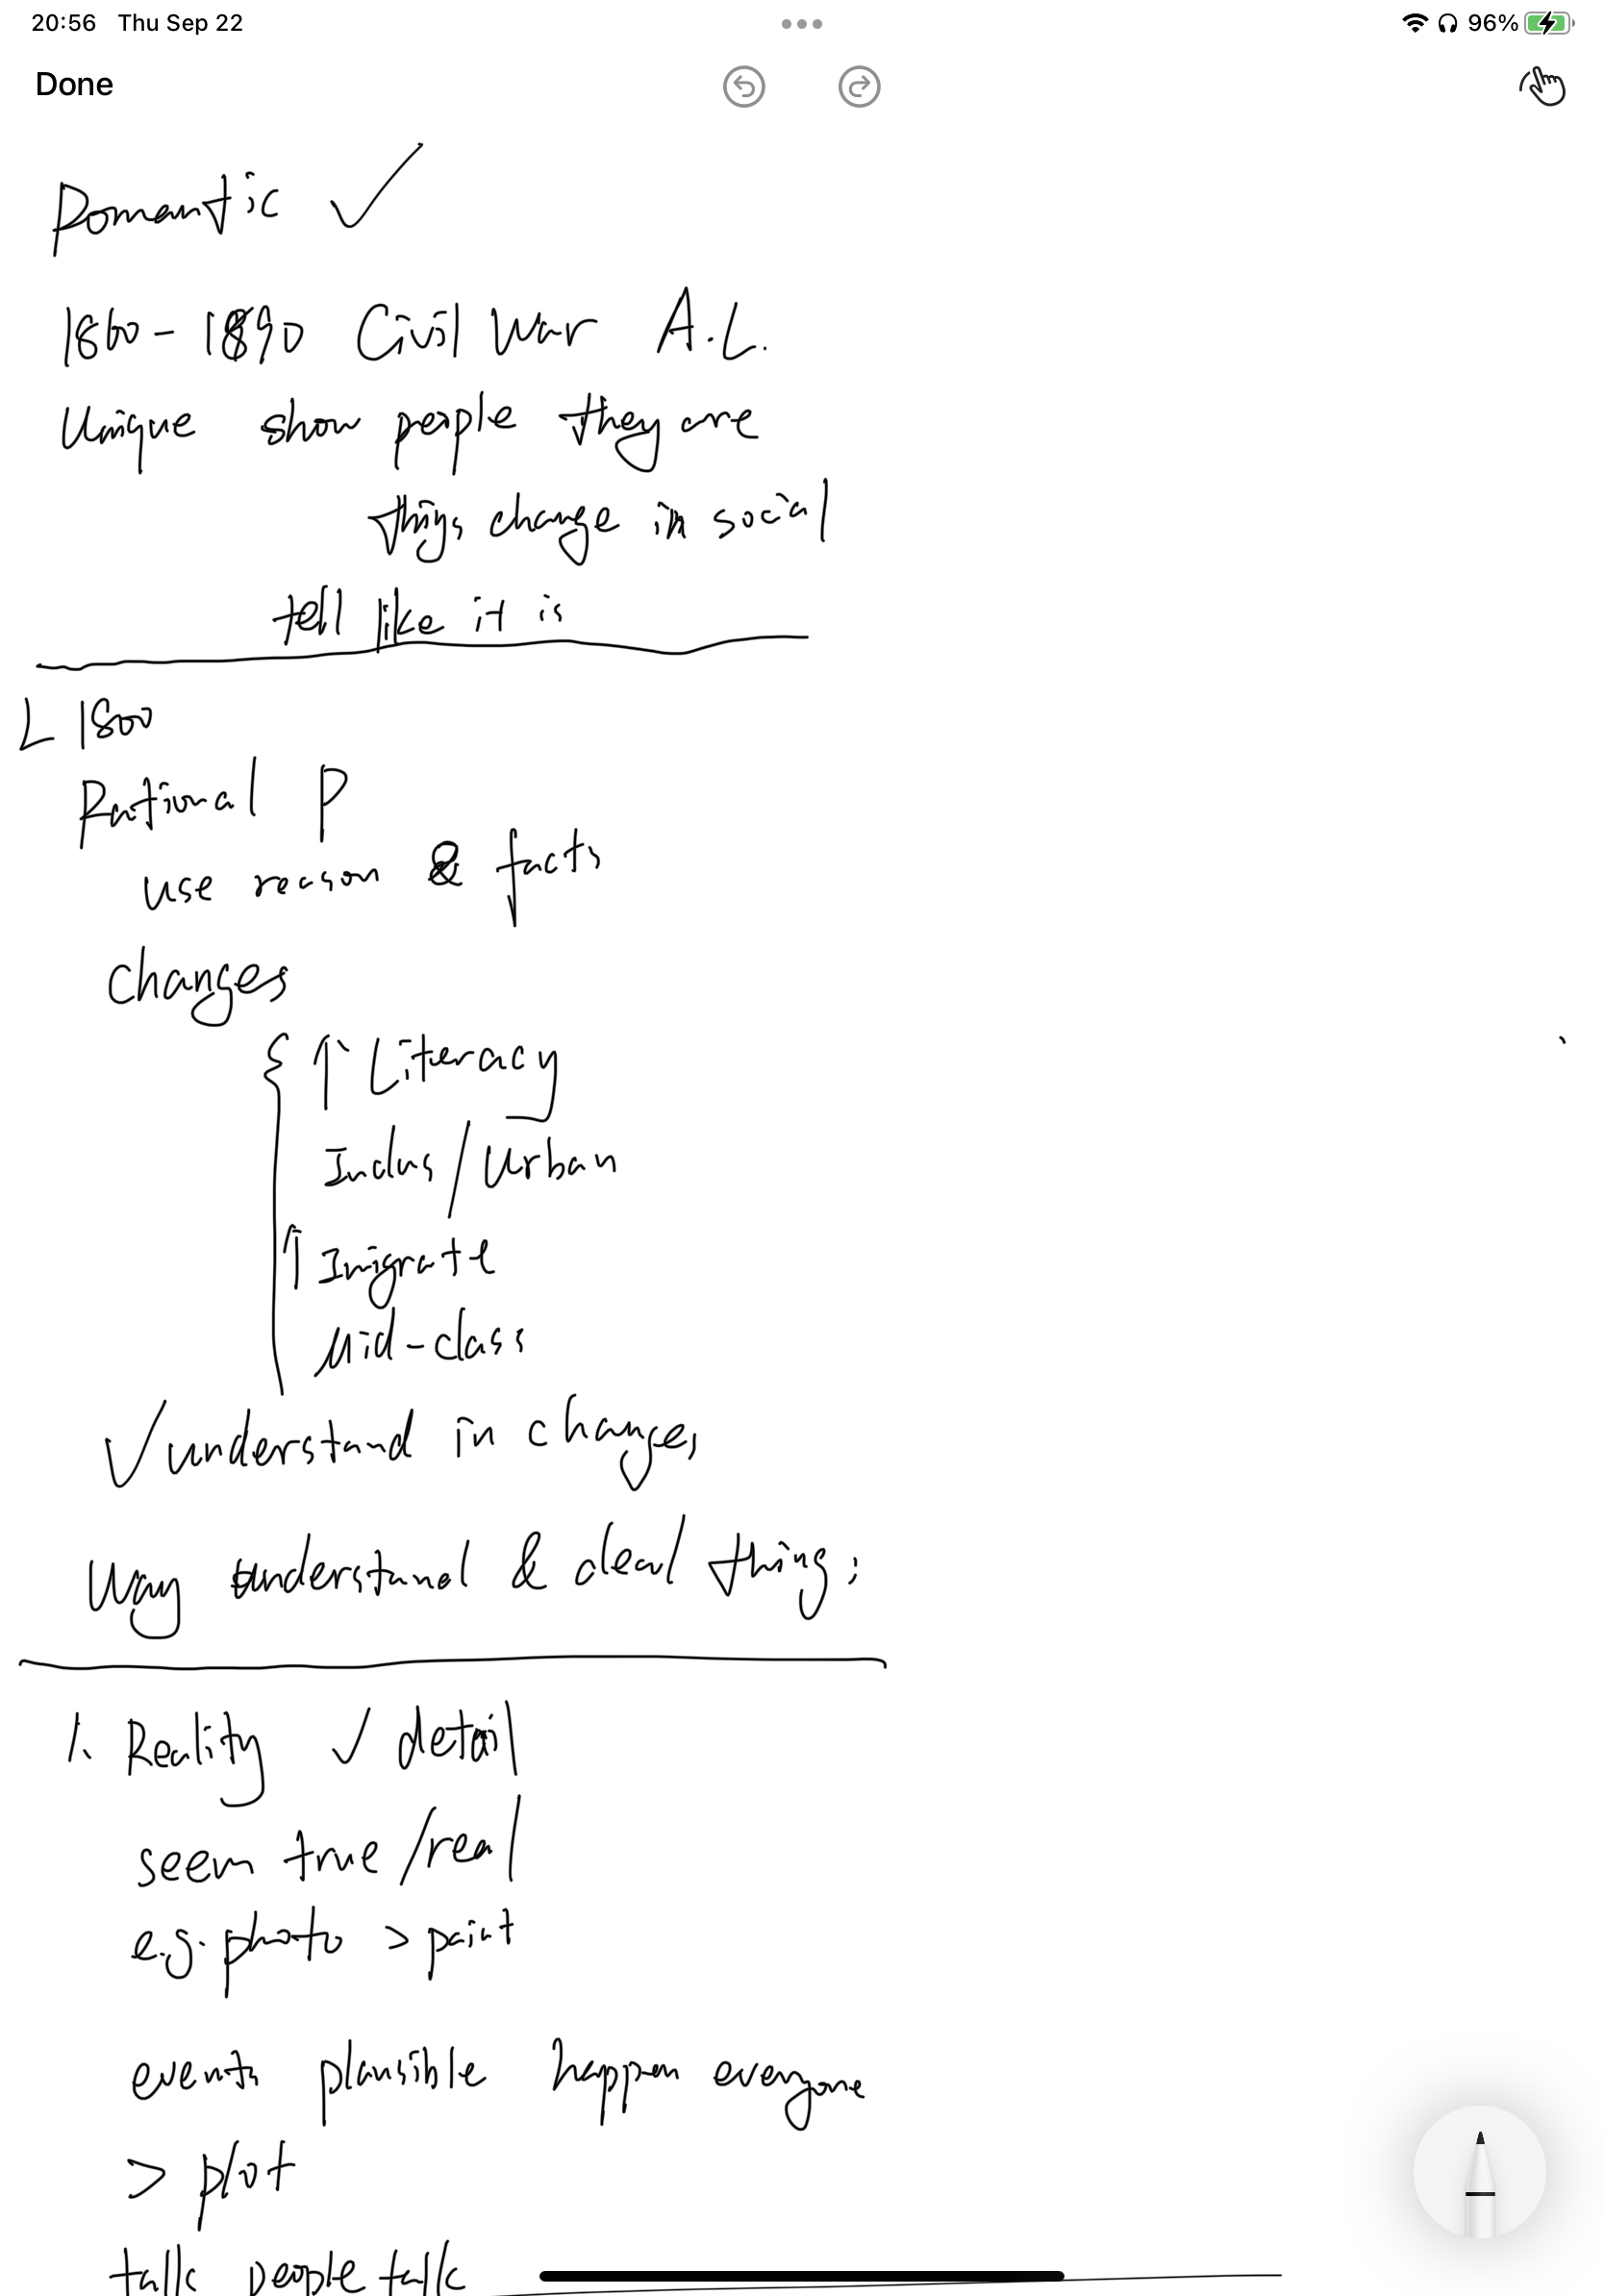 20:56 Thu Sep 22 96%
Done
Romantic ✓
1860-1890 Civil War A.L.
Unique show people they are
things change in social
tell like it is
L 1800
Rational P
use reason & facts
Changes
{ ↑ Literacy
Indus/Urban
↑ Imigrate
Mid-class
✓ understand in changes
Way understand & deal things
1. Reality ✓ detail
seem true/real
e.g. photo > paint
events plausible happen everyone
> plot
talk people talk